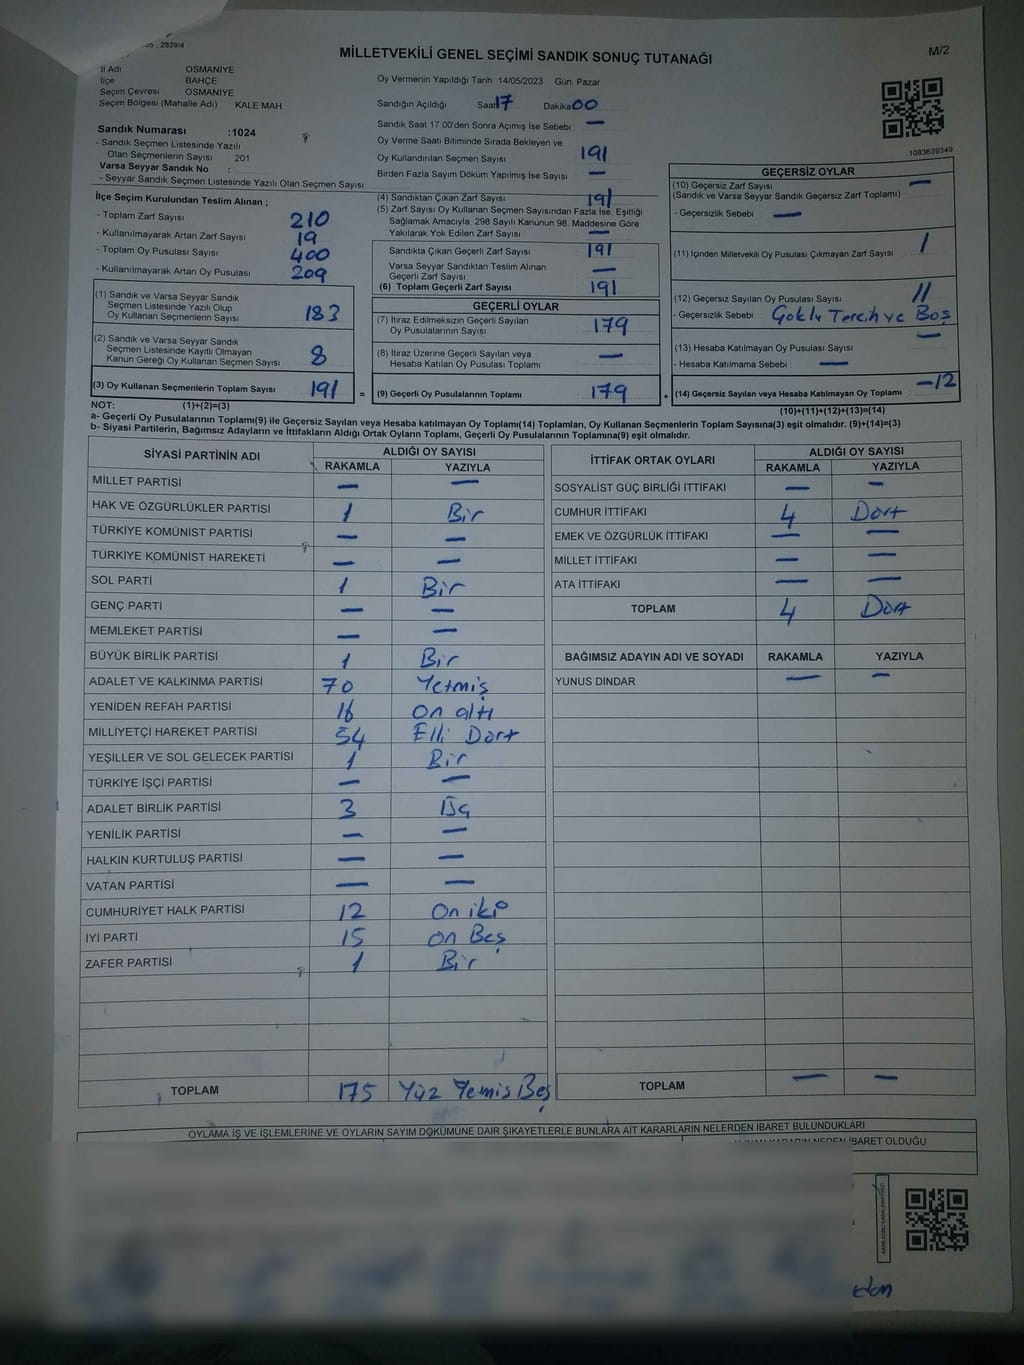 2839/4
MİLLETVEKİLİ GENEL SEÇİMİ SANDIK SONUÇ TUTANAĞI
M/2
İl Adı OSMANİYE
İlçe BAHÇE
Seçim Çevresi OSMANİYE
Seçim Bölgesi (Mahalle Adı) KALE MAH
Sandık Numarası :1024
- Sandık Seçmen Listesinde Yazılı
Olan Seçmenlerin Sayısı 201
Varsa Seyyar Sandık No :
- Seyyar Sandık Seçmen Listesinde Yazılı Olan Seçmen Sayısı
Oy Vermenin Yapıldığı Tarih 14/05/2023 Gün: Pazar
Sandığın Açıldığı Saat 17 Dakika 00
Sandık Saat 17.00'den Sonra Açımış İse Sebebi —
Oy Verme Saati Bitiminde Sırada Bekleyen ve
Oy Kullandırılan Seçmen Sayısı 191
Birden Fazla Sayım Döküm Yapılmış İse Sayısı —
1083639349
İlçe Seçim Kurulundan Teslim Alınan ;
- Toplam Zarf Sayısı 210
- Kullanılmayarak Artan Zarf Sayısı 19
- Toplam Oy Pusulası Sayısı 400
- Kullanılmayarak Artan Oy Pusulası 209
(1) Sandık ve Varsa Seyyar Sandık
Seçmen Listesinde Yazılı Olup
Oy Kullanan Seçmenlerin Sayısı 183
(2) Sandık ve Varsa Seyyar Sandık
Seçmen Listesinde Kayıtlı Olmayan
Kanun Gereği Oy Kullanan Seçmen Sayısı 8
(3) Oy Kullanan Seçmenlerin Toplam Sayısı 191 =
(4) Sandıktan Çıkan Zarf Sayısı 191
(5) Zarf Sayısı Oy Kullanan Seçmen Sayısından Fazla İse, Eşitliği
Sağlamak Amacıyla, 298 Sayılı Kanunun 98. Maddesine Göre
Yakılarak Yok Edilen Zarf Sayısı —
Sandıkta Çıkan Geçerli Zarf Sayısı 191
Varsa Seyyar Sandıktan Teslim Alınan
Geçerli Zarf Sayısı —
(6) Toplam Geçerli Zarf Sayısı 191
GEÇERLİ OYLAR
(7) İtiraz Edilmeksizin Geçerli Sayılan
Oy Pusulalarının Sayısı 179
(8) İtiraz Üzerine Geçerli Sayılan veya
Hesaba Katılan Oy Pusulası Toplamı —
(9) Geçerli Oy Pusulalarının Toplamı 179 +
GEÇERSİZ OYLAR
(10) Geçersiz Zarf Sayısı —
(Sandık ve Varsa Seyyar Sandık Geçersiz Zarf Toplamı)
- Geçersizlik Sebebi : —
(11) İçinden Milletvekili Oy Pusulası Çıkmayan Zarf Sayısı 1
(12) Geçersiz Sayılan Oy Pusulası Sayısı 11
- Geçersizlik Sebebi : Çoklu Tercih ve Boş
(13) Hesaba Katılmayan Oy Pusulası Sayısı —
- Hesaba Katılmama Sebebi : —
(14) Geçersiz Sayılan veya Hesaba Katılmayan Oy Toplamı —12
NOT: (1)+(2)=(3) (10)+(11)+(12)+(13)=(14)
a- Geçerli Oy Pusulalarının Toplamı(9) ile Geçersiz Sayılan veya Hesaba katılmayan Oy Toplamı(14) Toplamları, Oy Kullanan Seçmenlerin Toplam Sayısına(3) eşit olmalıdır. (9)+(14)=(3)
b- Siyasi Partilerin, Bağımsız Adayların ve İttifakların Aldığı Ortak Oyların Toplamı, Geçerli Oy Pusulalarının Toplamına(9) eşit olmalıdır.
SİYASİ PARTİNİN ADI ALDIĞI OY SAYISI
RAKAMLA YAZIYLA
MİLLET PARTİSİ — —
HAK VE ÖZGÜRLÜKLER PARTİSİ 1 Bir
TÜRKİYE KOMÜNİST PARTİSİ — —
TÜRKİYE KOMÜNİST HAREKETİ — —
SOL PARTİ 1 Bir
GENÇ PARTİ — —
MEMLEKET PARTİSİ — —
BÜYÜK BİRLİK PARTİSİ 1 Bir
ADALET VE KALKINMA PARTİSİ 70 Yetmiş
YENİDEN REFAH PARTİSİ 16 On altı
MİLLİYETÇİ HAREKET PARTİSİ 54 Elli Dört
YEŞİLLER VE SOL GELECEK PARTİSİ 1 Bir
TÜRKİYE İŞÇİ PARTİSİ — —
ADALET BİRLİK PARTİSİ 3 Üç
YENİLİK PARTİSİ — —
HALKIN KURTULUŞ PARTİSİ — —
VATAN PARTİSİ — —
CUMHURİYET HALK PARTİSİ 12 On iki
İYİ PARTİ 15 On Beş
ZAFER PARTİSİ 1 Bir
TOPLAM 175 Yüz Yemiş Beş
İTTİFAK ORTAK OYLARI ALDIĞI OY SAYISI
RAKAMLA YAZIYLA
SOSYALİST GÜÇ BİRLİĞİ İTTİFAKI — —
CUMHUR İTTİFAKI 4 Dört
EMEK VE ÖZGÜRLÜK İTTİFAKI — —
MİLLET İTTİFAKI — —
ATA İTTİFAKI — —
TOPLAM 4 Dört
BAĞIMSIZ ADAYIN ADI VE SOYADI RAKAMLA YAZIYLA
YUNUS DINDAR — —
TOPLAM — —
OYLAMA İŞ VE İŞLEMLERİNE VE OYLARIN SAYIM DÖKÜMÜNE DAİR ŞİKAYETLERLE BUNLARA AİT KARARLARIN NELERDEN İBARET BULUNDUKLARI
KARARIN NEDEN İBARET OLDUĞU